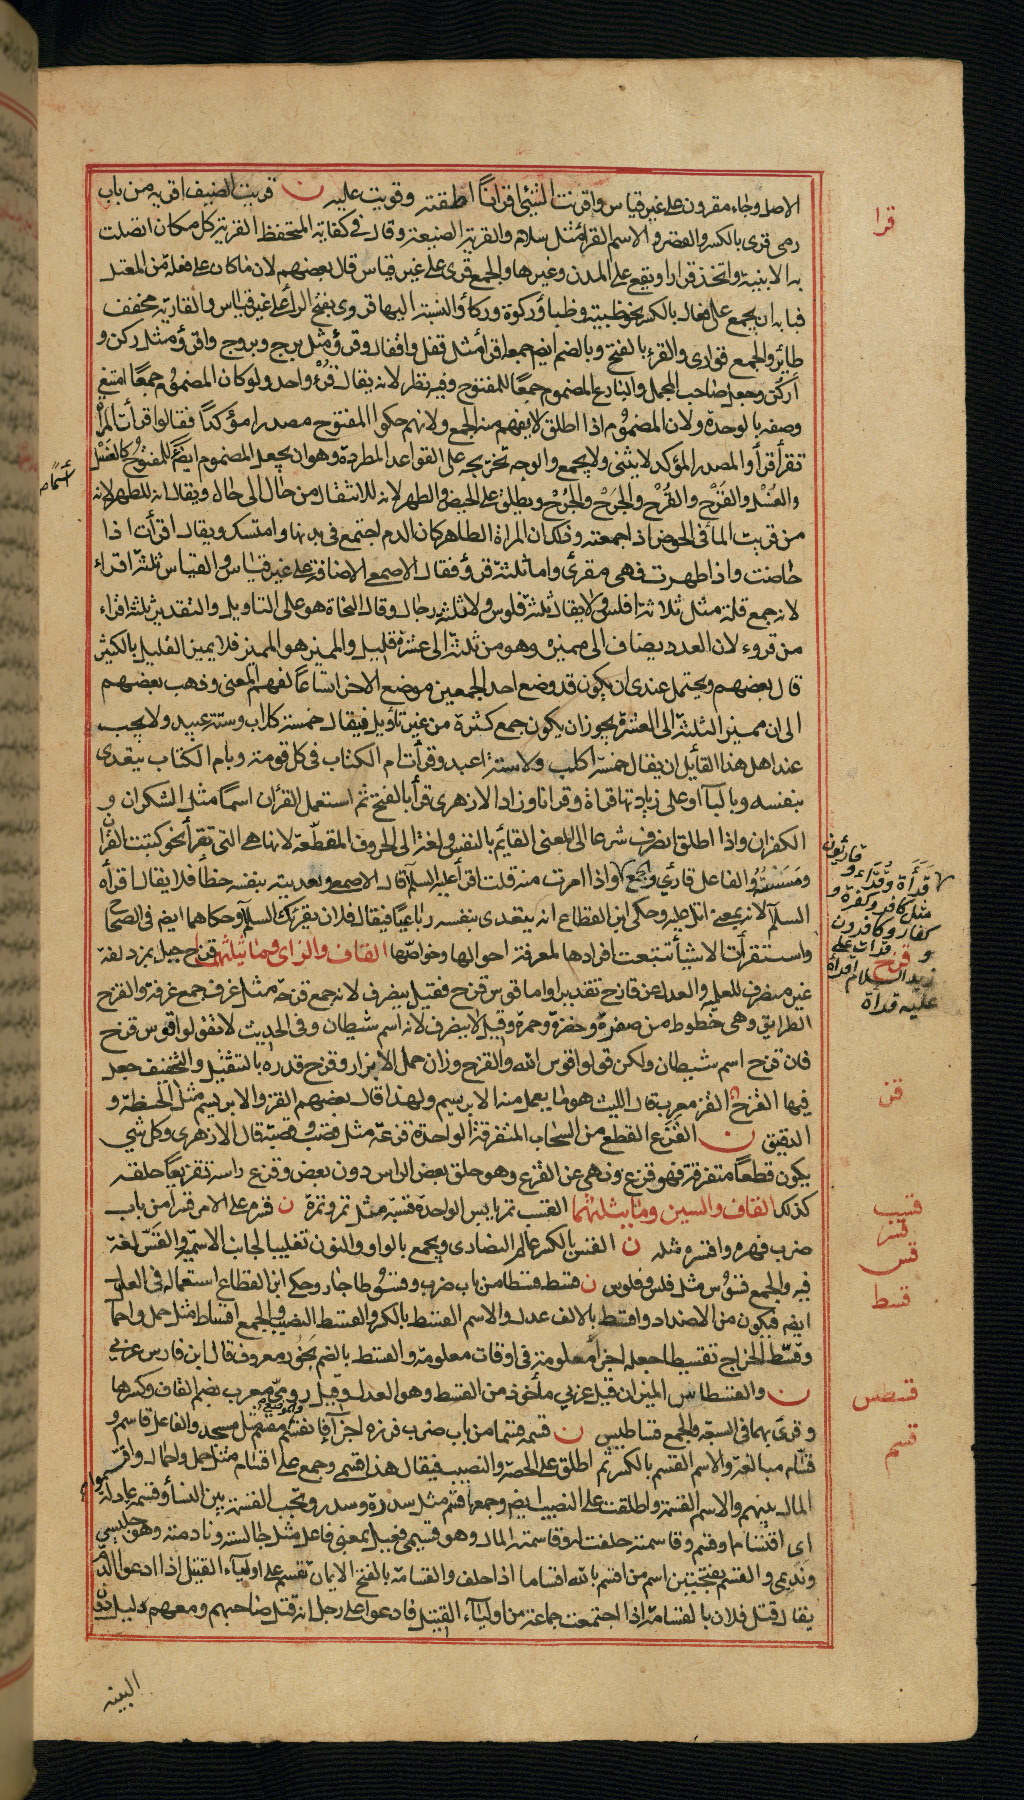 الاصل وجاء مقرون على غير قياس واقرنت الشئ اقرانا اطقته وقويت عليه ن قريت الضيف اقريه من باب
رمى قرى بالكسر والقصر والاسم القراء مثل سلام والقرية الضيعة وقال فى كفاية المتحفظ القرية كل مكان اتصلت
به الابنية واتخذ قرارا ويقع على المدن وغيرها والجمع قرى على غير قياس قال بعضهم لان ماكان على فعلة من المعتل
فبابه ان يجمع على فعال بالكسر نحو ظبية وظباء وركوة وركاء والنسبة اليها قروى بفتح الراء على غير قياس والقارية مخفف
طائر والجمع قوارى والقرء بالفتح وبالضم ايضم جمعه اقراء مثل قفل واقفال وقرؤ مثل برج وبروج واقرؤ مثل ركن و
اركن وجعل صاحب المجمل والبارع المضموم جمعا للمفتوح وفيه نظر لانه يقال قرء واحد ولو كان المضموم جمعا امتنع
وصفه بالوحدة ولان المضموم اذا اطلق لايفهم منه الجمع ولانهم حكوا المفتوح مصدرا مؤكدا فقالوا قرأت المرأة
تقرأ قرأ والمصدر المؤكد لايثنى ولايجمع والوجه تخريجه على القواعد المطردة وهو ان يجعل المضموم اسما للمفتوح كالغسل
والغسل والقرح والقرح والجرح والجرح ويطلق على الحيض والطهر لانه للانتقال من حال الى حال ويقال انه للطهر لانه
من قريت الماء فى الحوض اذا جمعته وذلك ان المراة الطاهر كان الدم اجتمع فى بدنها وامتسك ويقال اقرأت اذا
حاضت واذا طهرت فهى مقرئ واما ثلثة قرؤ فقال الاصمعى الاضافة على غير قياس والقياس ثلثة اقراء
لانه جمع قلة مثل ثلاثة افلس ولايقال ثلثة فلوس ولا ثلثة رجال وقال النحاة هو على التاويل والتقدير ثلثة اقراء
من قروء لان العدد يضاف الى مميزه وهو من ثلثة الى عشرة قليل والمميز هو المميز فلا يميز القليل بالكثير
قال بعضهم ويحتمل عندى ان يكون قد وضع احد الجمعين موضع الاخر اتساعا لفهم المعنى وذهب بعضهم
الى ان مميز الثلثة الى العشرة يجوز ان يكون جمع كثرة من غير تاويل فيقال خمسة كلاب وستة عبيد ولايجب
عند اهل هذا القائيل ان يقال خمسة اكلب ولا ستة اعبد وقرأت ام الكتاب فى كل قومة وبام الكتاب يتعدى
بنفسه وبالباء او على زيادتها قراءة وقرانا وزاد الازهرى قرأ بالفتح ثم استعمل القرآن اسما مثل الشكران و
الكفران واذا اطلق انصرف شرعا الى المعنى القائيم بالنفس ولغة الى الحروف المقطعة لانها هى التى تقرأ نحو كتبت القران
ومسسته والفاعل قارئ وجمع واذا امرت منه قلت اقرأ عليه السلام قال الاصمعى وتعديته بنفسه خطأ فلا يقال اقرأه
السلام لانه بمعنى اتل عليه وحكى ابن القطاع انه يتعدى بنفسه رباعيا فيقال فلان يقرئك السلام وحكاهما ايضم فى الصحاح
واستقرأت الاشيأ تتبعت افرادها لمعرفة احوالها وخواصها القاف والزاى وما يثلثهما قزح جبل بمزدلفة
غير منصرف للعلمية والعدل عن قازح تقديرا واما قوس قزح فقيل ينصرف لانه جمع قزحة مثل غرف جمع غرفة والقزح
الطرايق وهى خطوط من صفرة وخضرة وحمرة وقيل لاينصرف لانه اسم شيطان وفى الحديث لاتقولوا قوس قزح
فان قزح اسم شيطان ولكن قولوا قوس الله والقزح وزان حمل الابزار وقزح قدره بالتثقيل والتخفيف جعل
فيها القزح القز معرب قال الليث هو مايعمل منه الابريسم ولهذا قال بعضهم القز والابريسم مثل الحنطة و
الدقيق ن القزع القطع من السحاب المتفرقة الواحدة قزعة مثل قصب وقصبة قال الازهرى وكل شئ
يكون قطعا متفرقة فهو قزع ونهى عن القزع وهو حلق بعض الراس دون بعض وقزع راسه تقزيعا حلقه
كذلك القاف والسين ومايثلثهما القسب تمر يابس الواحدة قسبة مثل تمر وتمرة ن قسره على الامر قسرا من باب
ضرب قهره واقتسره مثله ن القس بالكسر عالم النصارى ويجمع بالواو والنون تغليبا لجانب الاسمية والقس لغة
فيه والجمع قسوس مثل فلس وفلوس ن قسط قسطا من باب ضرب وقسوطا جار وحكى ابن القطاع استعماله فى العدل
ايضم فيكون من الاضداد واقسط بالالف عدل والاسم القسط بالكسر والقسط النصيب والجمع اقساط مثل حمل واحمال
وقسط الخراج تقسيطا جعله اجزأ معلومة فى اوقات معلومة والقسط بالضم بخور معروف قال ابن فارس عربى
ن والقسطاس الميزان قيل عربى مأخوذ من القسط وهو العدل وقيل رومى معرب بضم القاف وكسرها
وقرئ بهما فى السبعة والجمع قساطيس ن قسمه قسما من باب ضرب فرزه اجزاء فانقسم والموضع مقسم مثل مسجد والفاعل قاسم و
قسام مبالغة والاسم القسم بالكسر ثم اطلق على الحصة والنصيب فيقال هذا قسمى وجمع على اقسام مثل حمل واحمال واقتسموا
المال بينهم والاسم القسمة واطلقت على النصيب ايضم وجمعها قسم مثل سدرة وسدر وتجب القسمة بين النسأ وقسمة عادلة
اى اقتسام او قسم وقاسمته حلفت له وقاسمته المال وهو قسيمى فعيل بمعنى فاعل مثل جالسته ونادمته وهو جليسى
ونديمى والقسم بفتحتين اسم من اقسم بالله اقساما اذا حلف والقسامة بالفتح الايمان تقسم على اولياء القتيل اذا ادعوا الدم
يقال قتل فلان بالقسامة اذا اجتمعت جماعة من اولياء القتيل فادعوا على رجل انه قتل صاحبهم ومعهم دليل دون
البينة
قرا
اسما صح
قرأة وقراء وقارئون
مثل كافر وكفرة و
كفار وكافرون
و قرات على
زيد السلام اقرأه
عليه قراة
قزح
قز
قسب
قسر
قس
قسط
قسطس
قسم